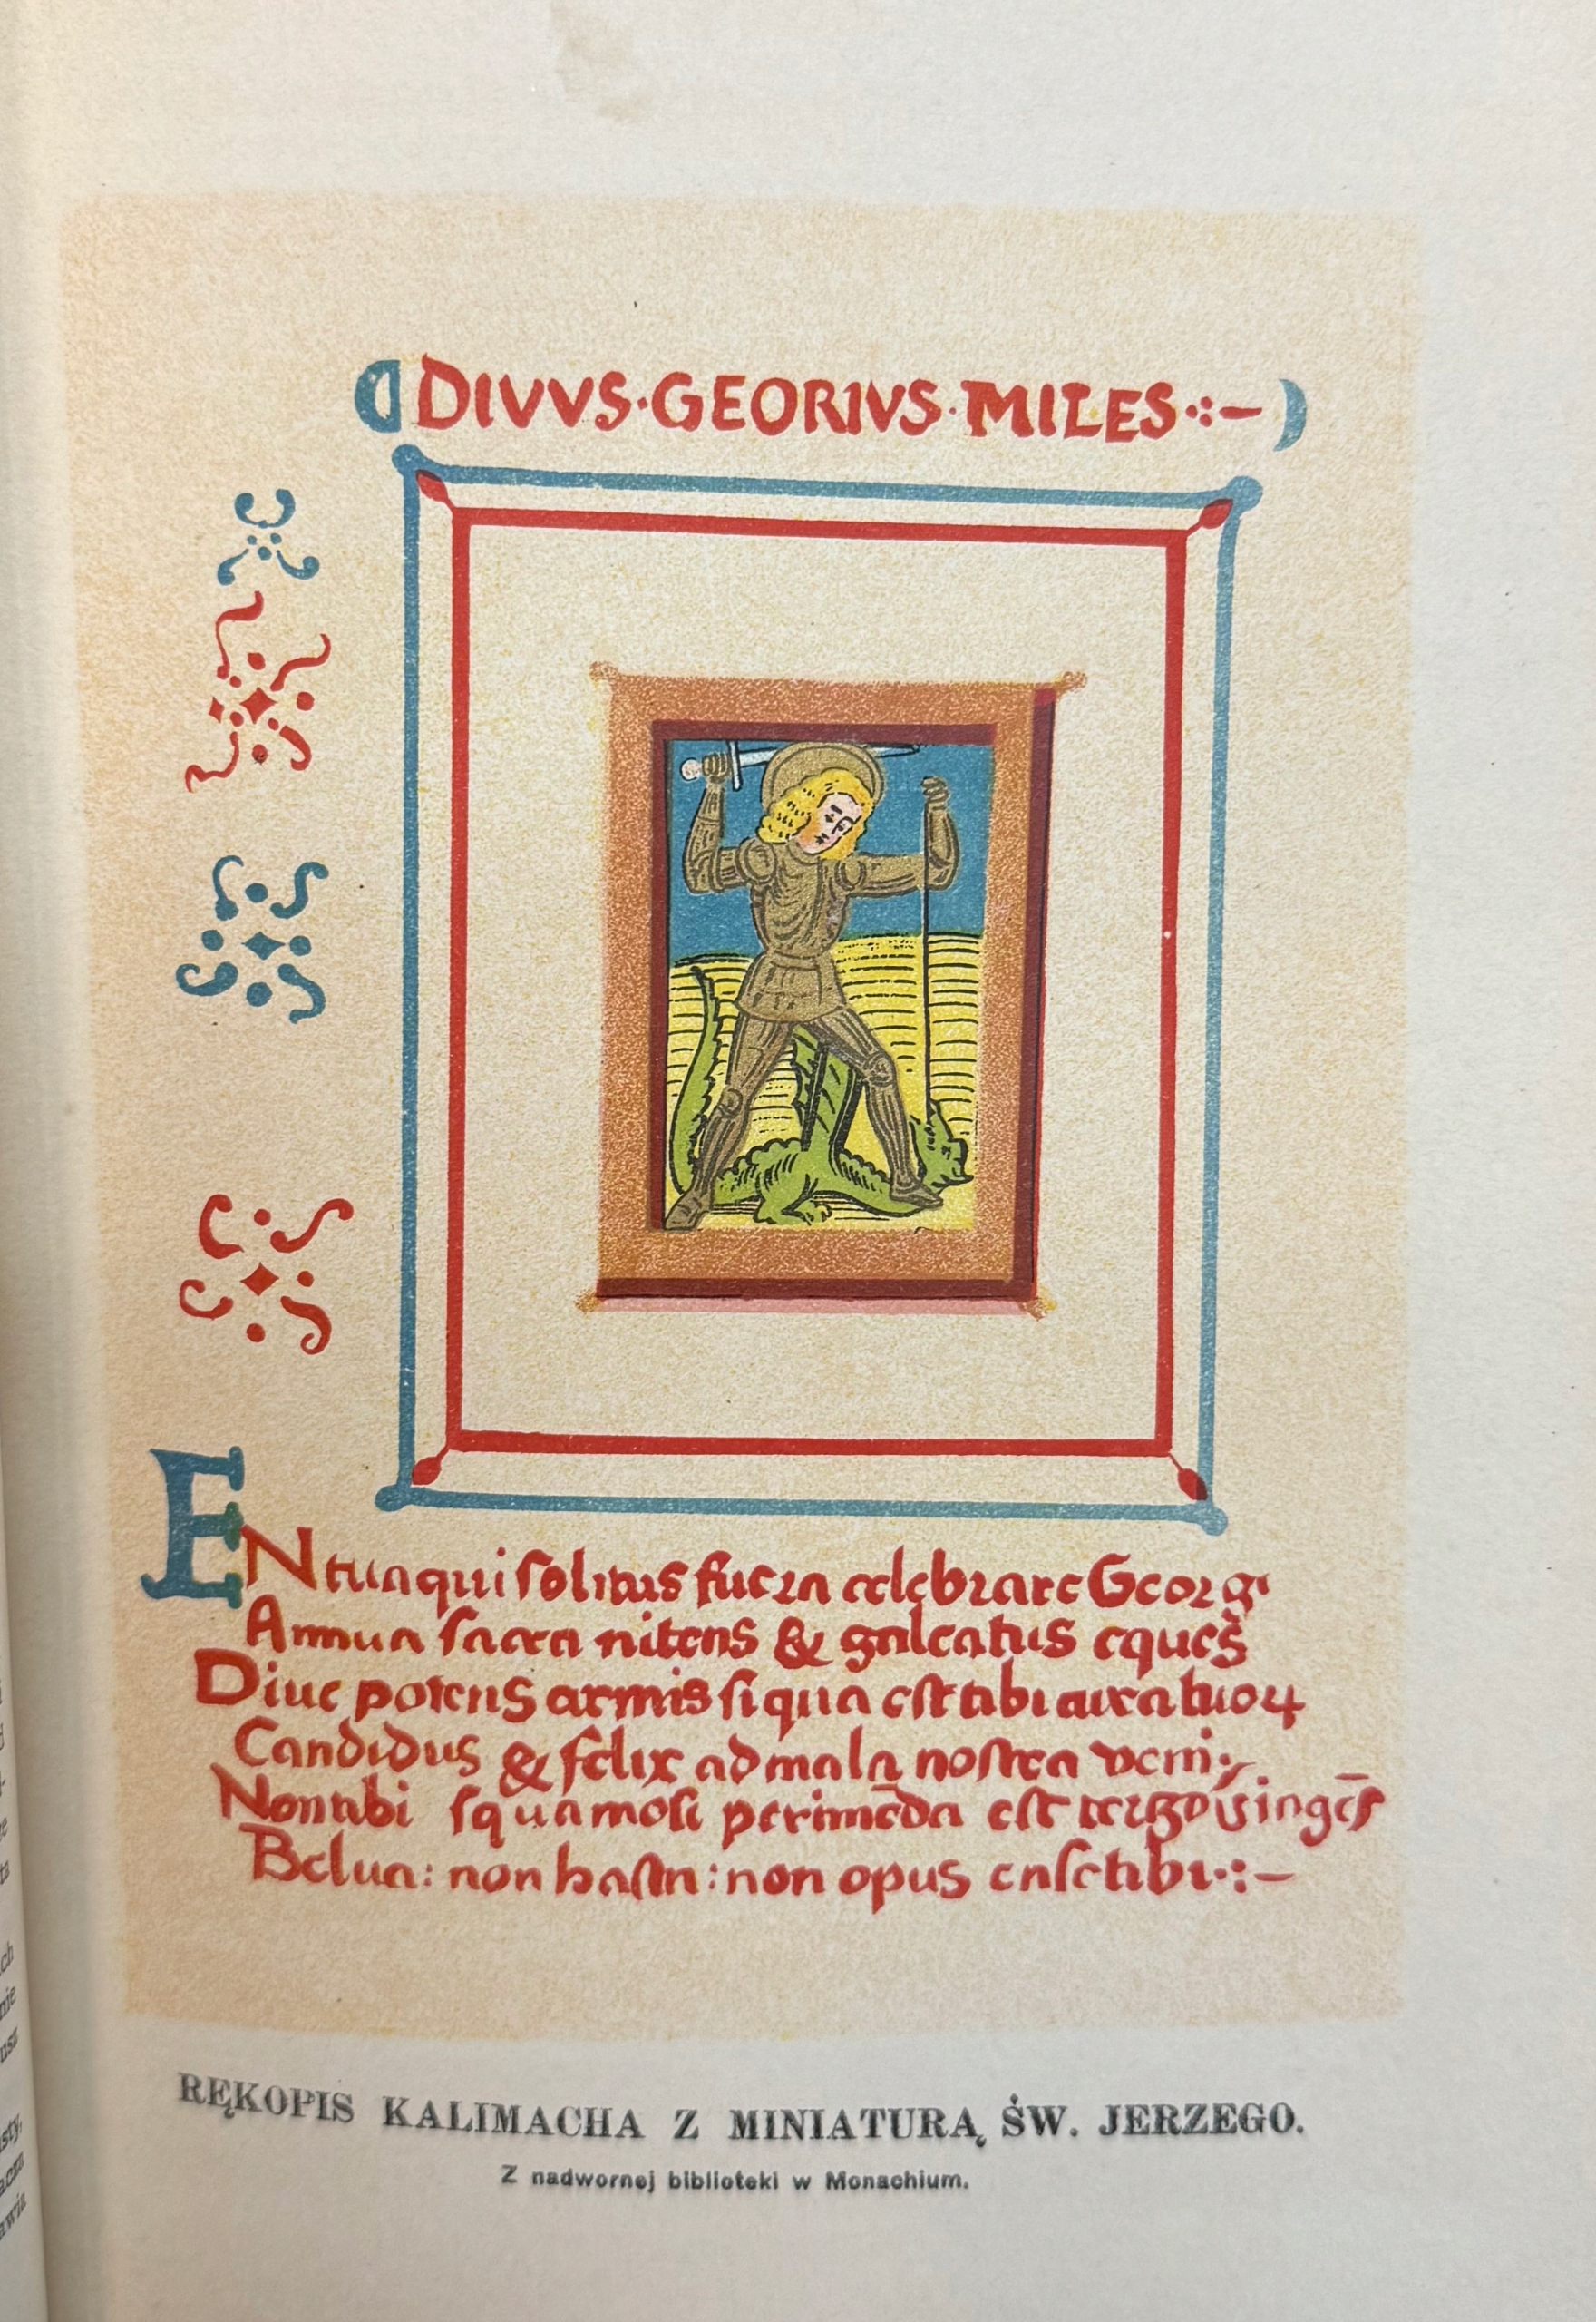 DIVVS·GEORIVS·MILES·:–
EN tua qui solitus fuera celebrare Georgi
Annua sacra nitens & galeatus eques
Diue potens armis si qua est tibi cura tuoꝝ
Candidus & felix ad mala nostra veni·
Non tibi squamosi perimēda est
Belua: non hasta: non opus ense tibi·:–
RĘKOPIS KALIMACHA Z MINIATURĄ ŚW. JERZEGO.
Z nadwornej biblioteki w Monachium.